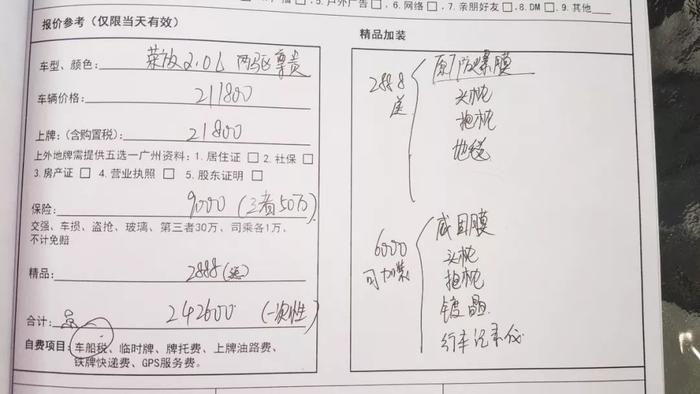 5. 户外广告 □ 6. 网络 □ 7. 亲朋好友 □ 8. DM □ 9. 其他
报价参考（仅限当天有效）
车型、颜色： 2.0L 两驱尊贵
车辆价格： 211800
上牌：(含购置税)： 21800
上外地牌需提供五选一广州资料：1. 居住证 □ 2. 社保 □
3. 房产证 □ 4. 营业执照 □ 5. 股东证明 □
保险： 9000 (三者50万)
交强、车损、盗抢、玻璃、第三者30万、司乘各1万、
不计免赔
精品： 2888 (送)
合计： 242600 (一次性)
自费项目：车船税、临时牌、牌托费、上牌油路费、
铁牌快递费、GPS服务费。
精品加装
2888
送
原厂防爆膜
头枕
抱枕
地毯
6000
可加装
威固膜
头枕
抱枕
镀晶
行车记录仪